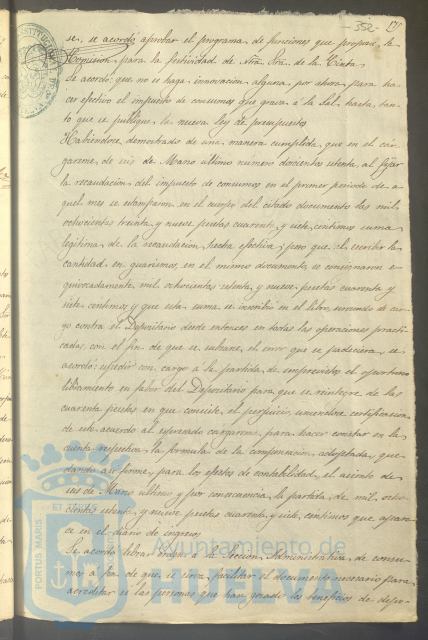 352 17
se, se acordó aprobar el programa de funciones que propone la
Comision para la festividad de Ntra. Sra. de la Cinta
Se acordó: que no se haga innovacion alguna, por ahora, para ha-
cer efectivo el impuesto de consumos que grava á la Sal, hasta tan-
to que se publique la nueva ley de presupuestos
Habiendose demostrado de una manera cumplida, que en el car-
gareme, de seis de Marzo ultimo numero doscientos setenta, al fijar
la recaudacion del impuesto de consumos en el primer periodo de a-
quel mes se estamparon en el cuerpo del citado documento dos mil
ochocientas treinta y nueve pesetas cuarenta y siete centimos suma
legitima de la recaudacion hecha efectiva, pero que al escribir la
cantidad en guarismos, en el mismo documento se consignaron e-
quivocadamente mil ochocientas setenta y nueve pesetas cuarenta y
siete centimos y que esta suma se inscribió en el libro, surtiendo de car-
go contra el Depositario desde entonces en todas las operaciones practi-
cadas, con el fin de que se subsane el error que se padeciera, se
acordó: expedir con cargo á la partida de imprevistos el oportuno
libramiento en favor del Depositario para que se reintegre de las
cuarenta pesetas en que consiste el perjuicio, uniendose certificacion
de este acuerdo al espresado cargareme, para hacer constar en la
cuenta respectiva la formula de la compensacion adoptada, que-
dando asi firme, para los efectos de contabilidad, el asiento de
seis de Marzo ultimo y por consecuencia la partida de mil ocho-
cientas setenta y nueve pesetas cuarenta y siete centimos que apare-
ce en el diario de ingresos
Se acordó librar orden á la Seccion Administrativa de consu-
mos á fin de que se sirva facilitar el documento necesario para
acreditar si las personas que han gozado los beneficios de
PORTUS MARIS
Ayuntamiento de
HUELVA